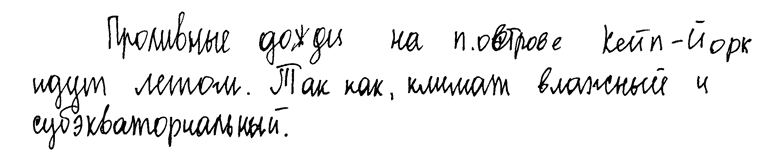 Проливные дожди на п.острове Кейп-Йорк
идут летом. Так как, климат влажный и
субэкваториальный.